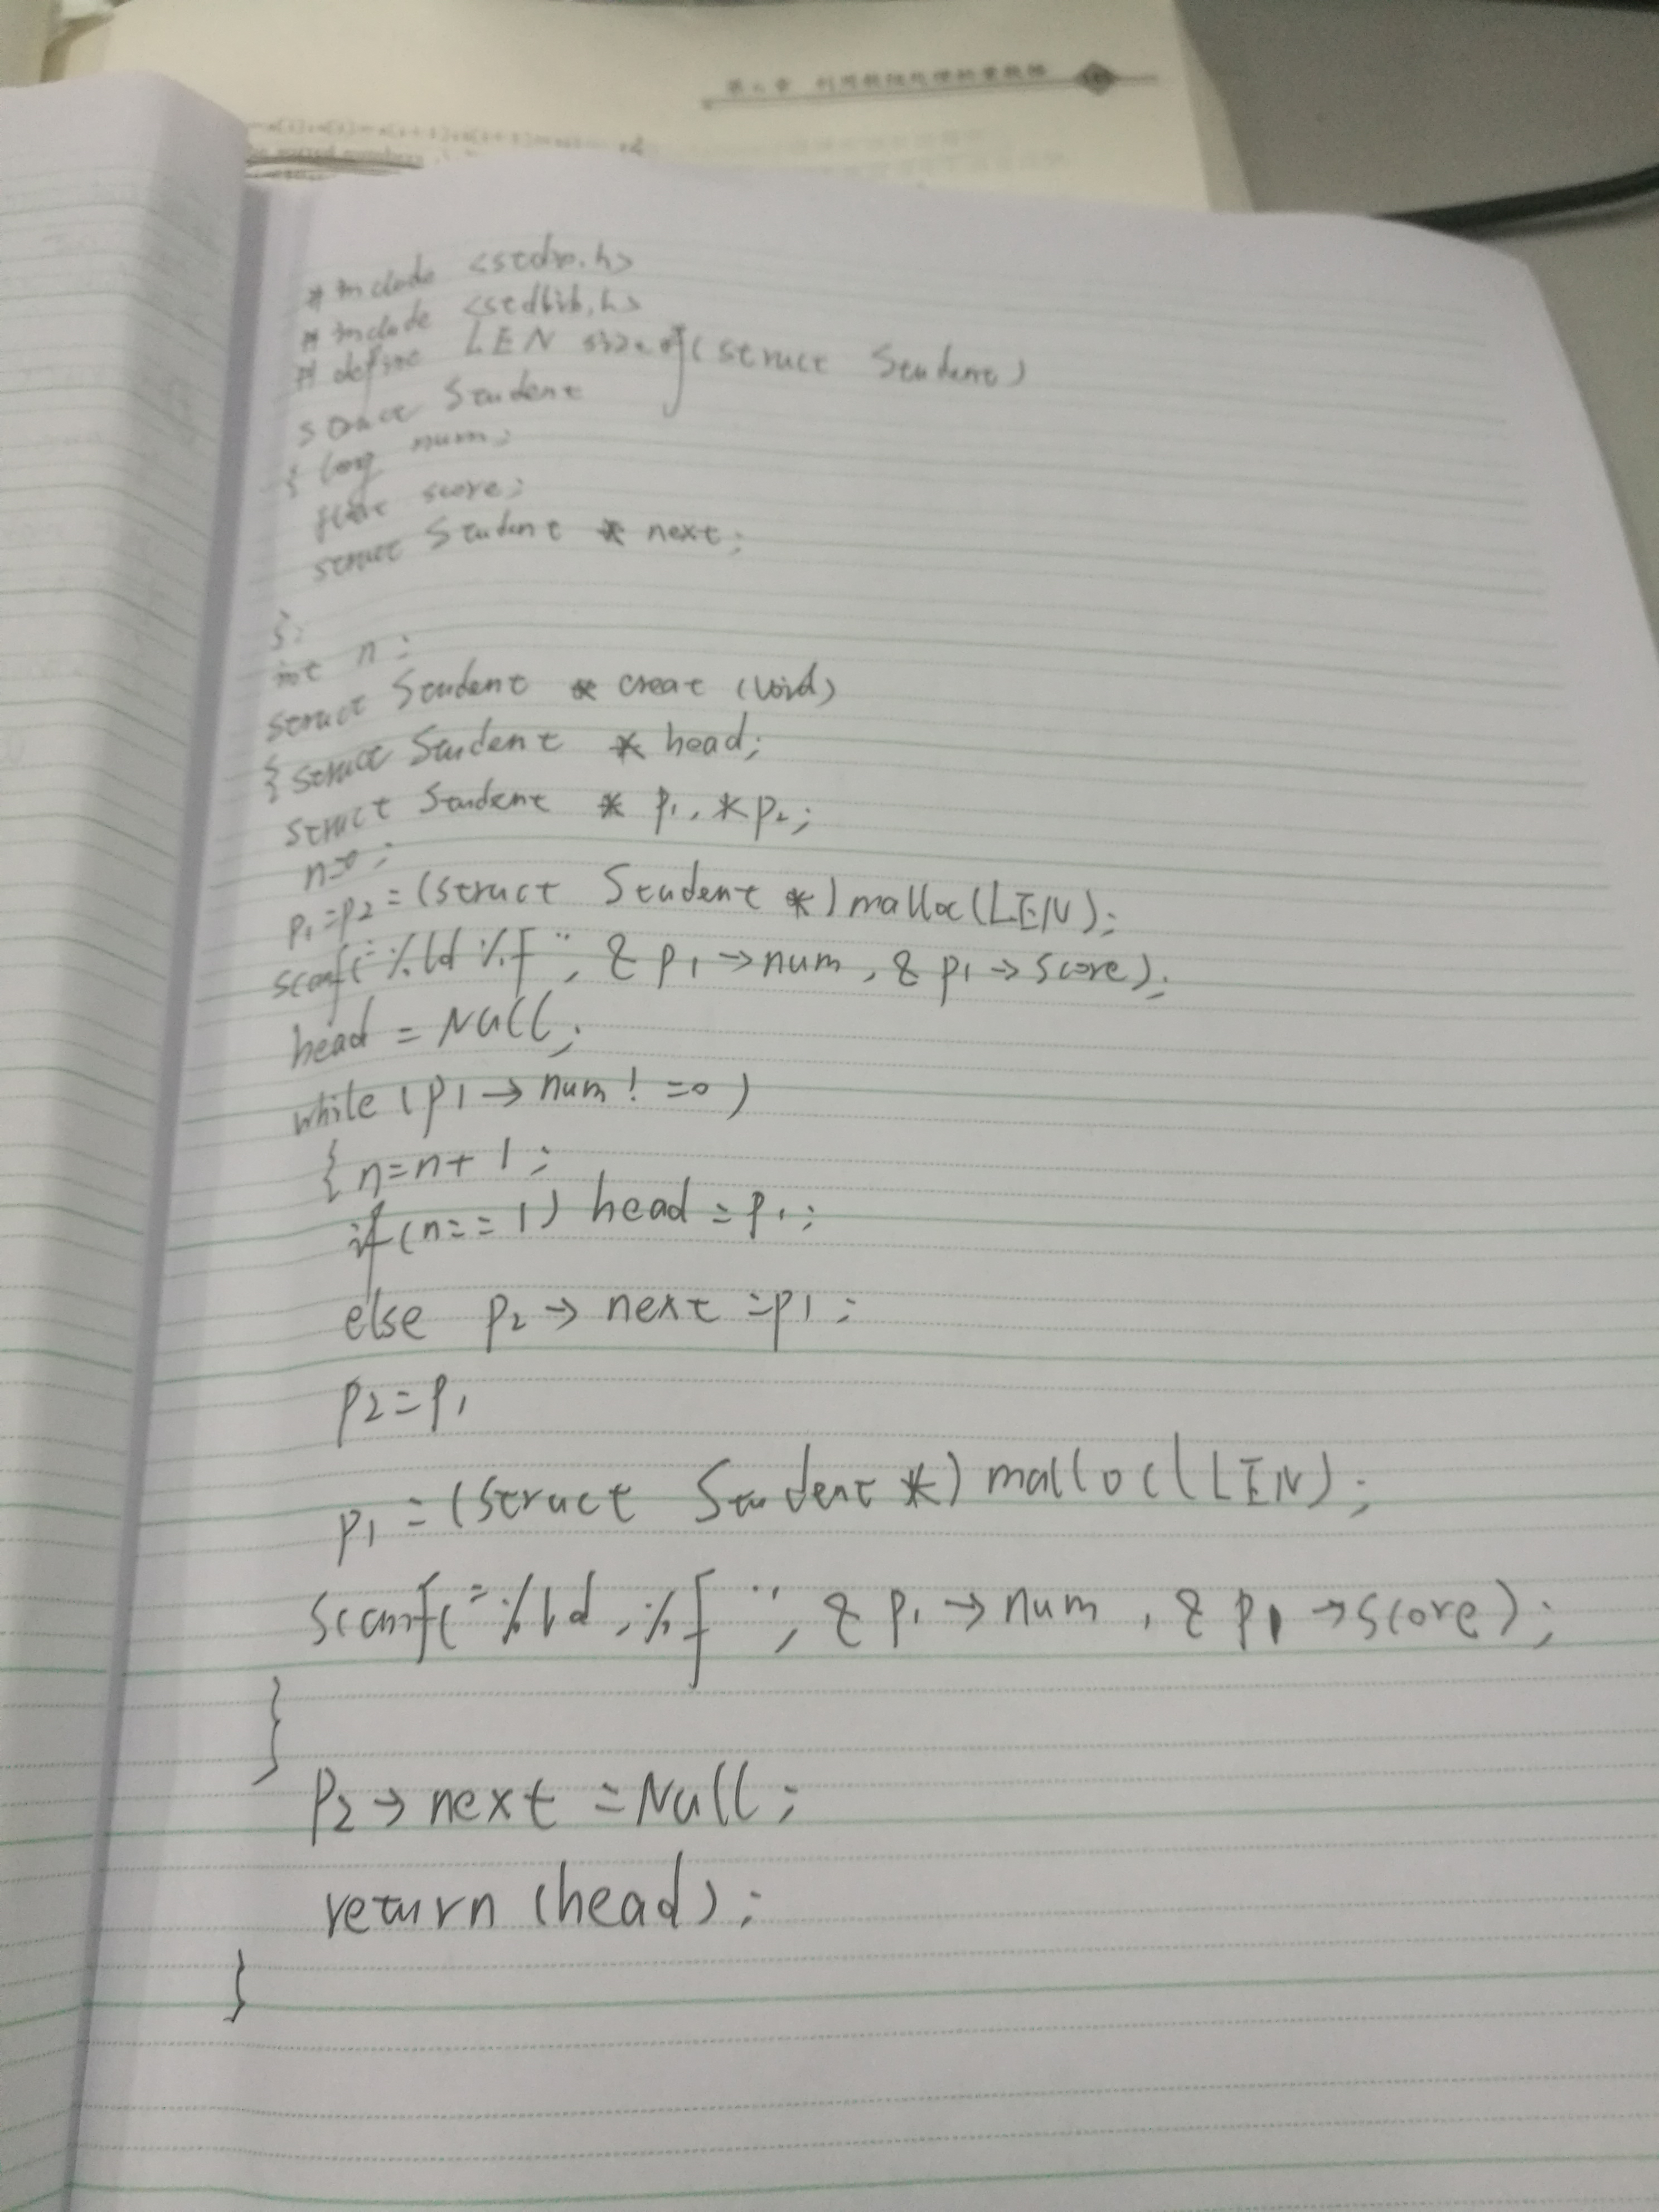 #include <stdio.h>
#include <stdlib.h>
#define LEN sizeof(struct Student)
struct Student
{ long num;
float score;
struct Student * next;
};
int n;
struct Student * creat (void)
{ struct Student * head;
struct Student * p1, *p2;
n=0;
p1=p2=(struct Student *)malloc(LEN);
scanf("%ld %f", &p1->num, &p1->score);
head = Null;
while (p1->num! =0)
{ n=n+1;
if(n==1) head=p1;
else p2->next=p1;
p2=p1
p1=(struct Student *)malloc(LEN);
scanf("%ld,%f", &p1->num, &p1->score);
}
p2->next=Null;
return (head);
}